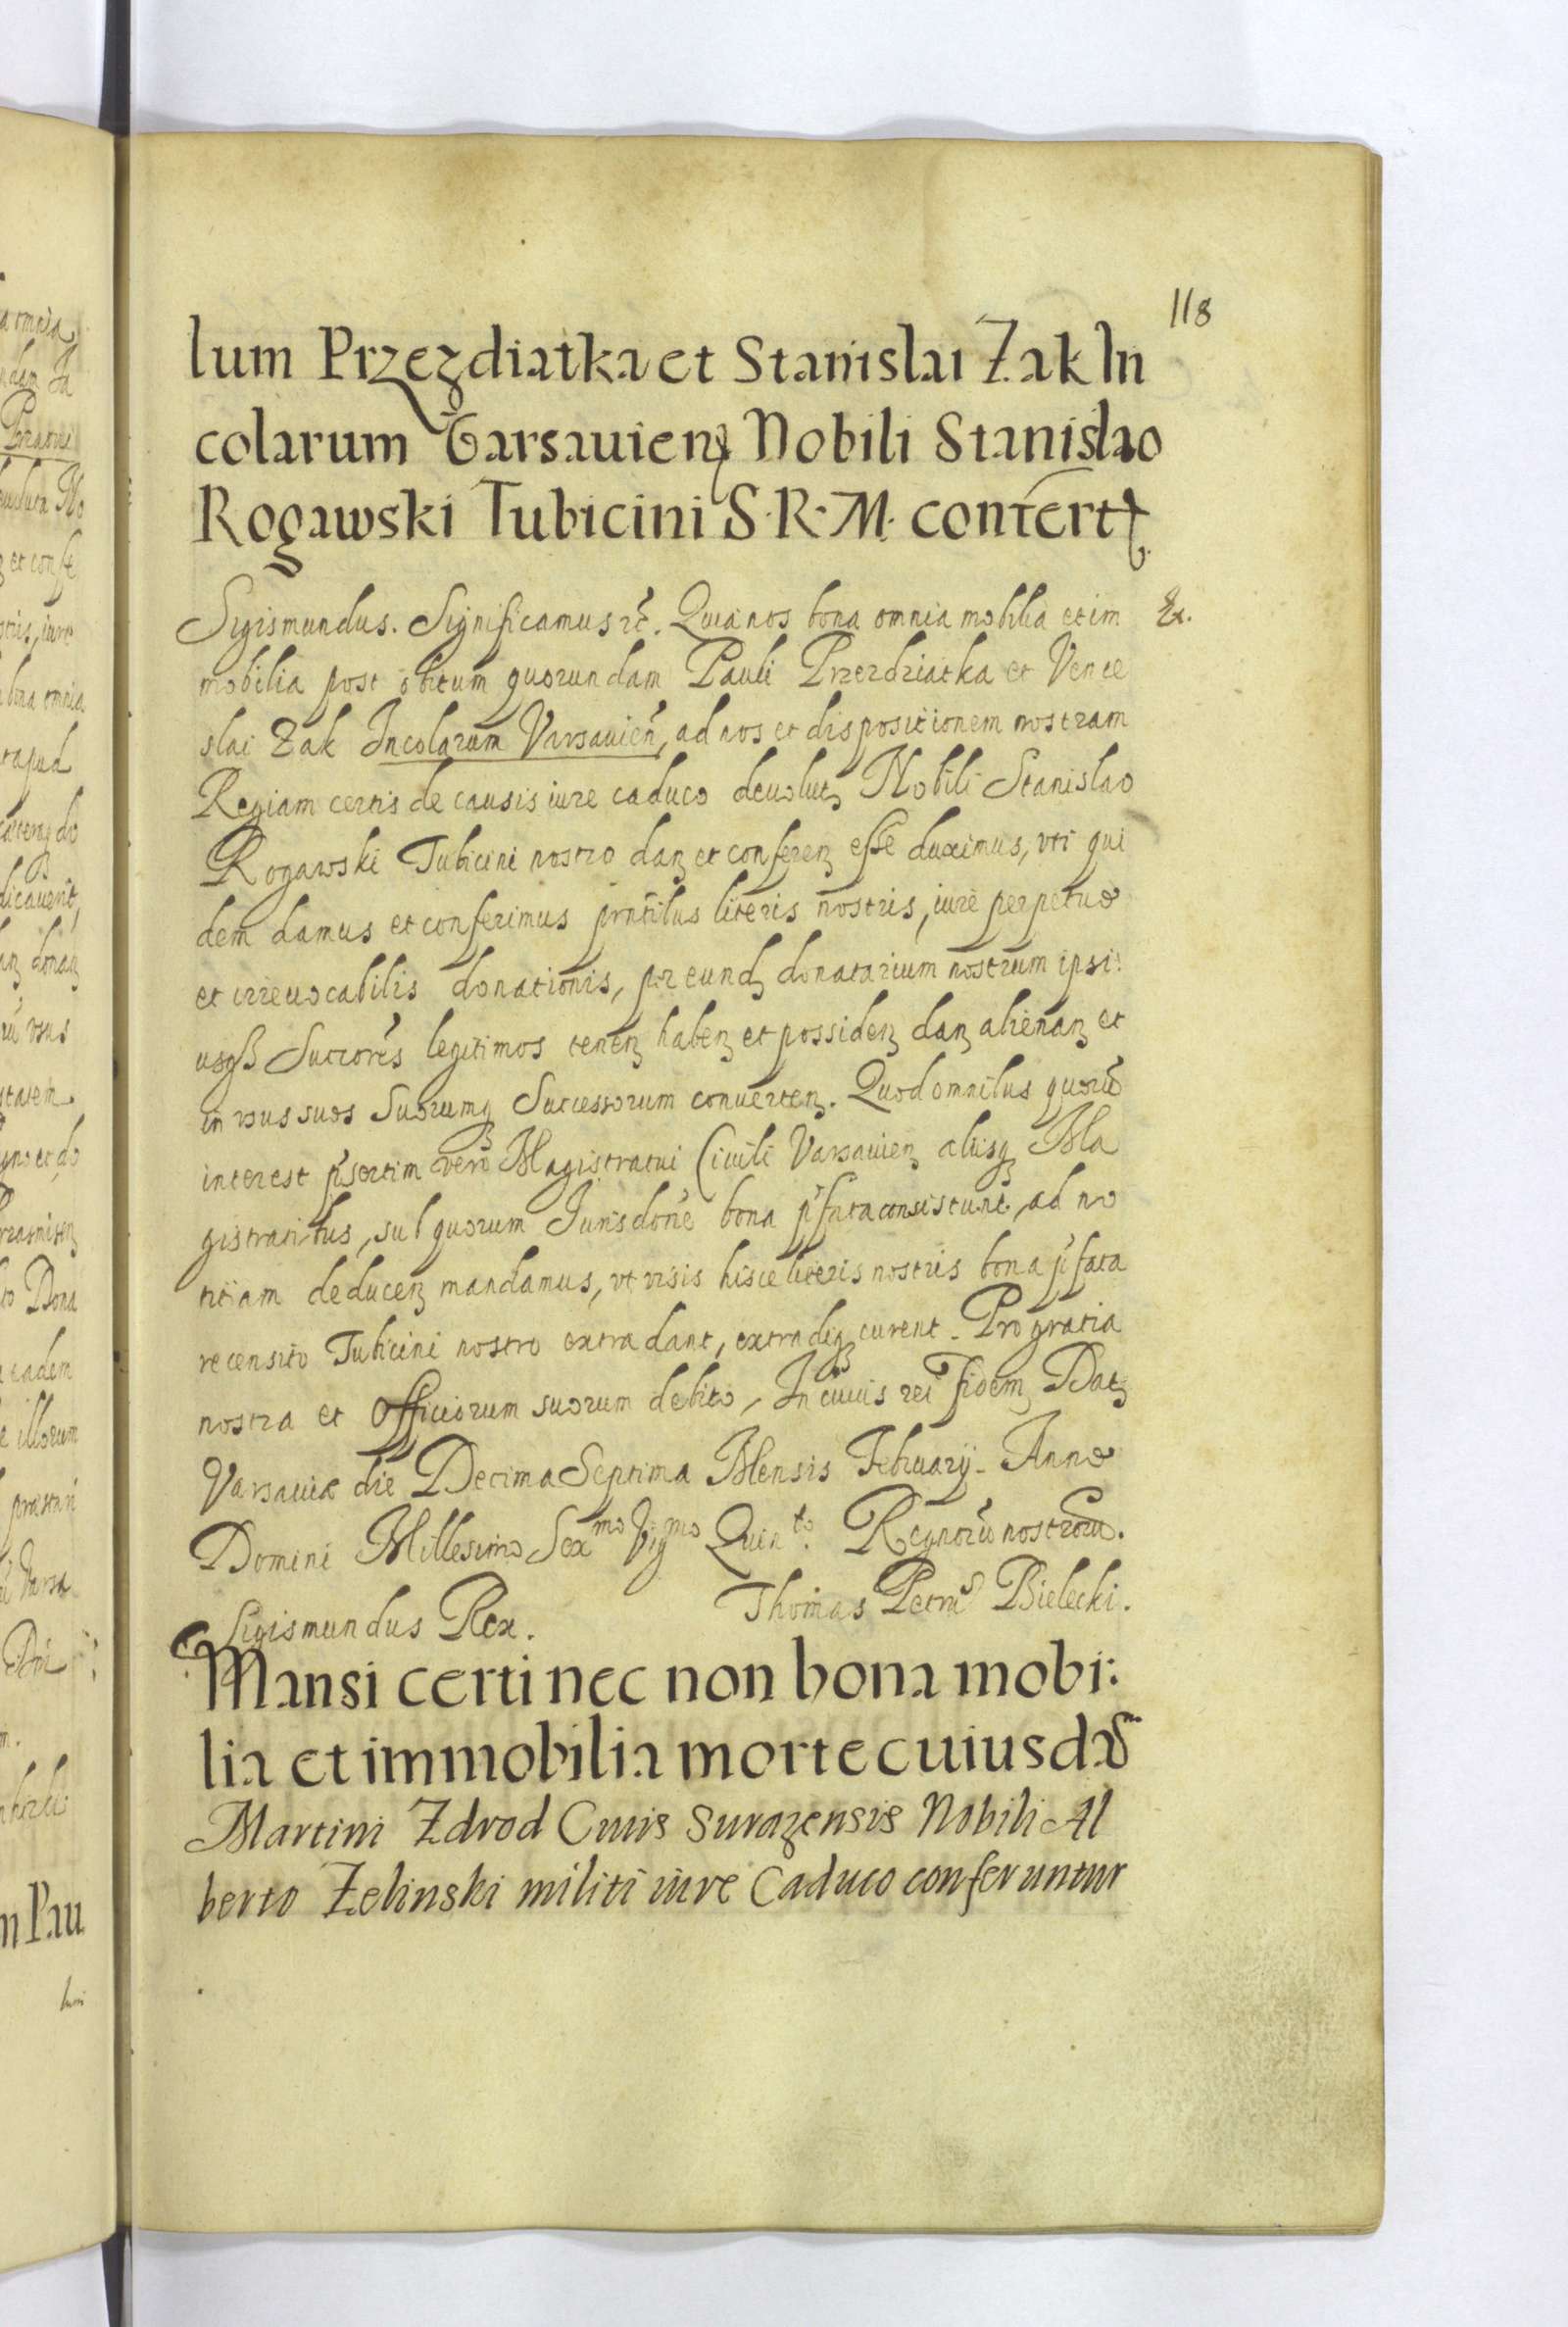 118
lum Przezdiatka et Stanislai Zak In
colarum Varsauienʒ Nobili Stanislao
Rogawski Tubicini S.R.M. confertʒ
Sigismundus. Significamus rc̃. Quia nos bona omnia mobilia et im
Ex.
mobilia post obitum quorundam Pauli Przezdziatka et Vence
slai Zak Incolarum Varsauien̄, ad nos et dispositionem nostram
Regiam certis de causis iure caduco deuolutʒ Nobili Stanislao
Rogawski Tubicini nostro danʒ et conferenʒ esse duximus, vti qui
dem damus et conferimus prñtibus literis nostris, iure perpetuo
et irreuocabilis donationis, per eundʒ donatarium nostrum ipsi:
usqʒ Succores legitimos tenenʒ habenʒ et possidenʒ danʒ alienanʒ et
in vsus suos Suorumqʒ Successorum conuertenʒ. Quod omnibus quorū
interest p̃sertim vero Magistratui Ciuili Varsauienʒ alijsqʒ Ma
gistratibus, sub quorum Jurisdone bona p̃fata consistunt, ad no
titiam deducenʒ mandamus, vt visis hisce literis nostris bona p̃fata
recensito Tubicini nostro extradant, extradiqʒ curent. Pro gratia
nostra et Officiorum suorum debito, In cuius rei fidemʒ Datʒ
Varsauiæ die Decima Septima Mensis February. Anno
Domini Millesimo Sexmo Vigmo Quinto. Regnorū nostrorū.
Sigismundus Rex. Thomas Petrus Bielecki.
Mansi certi nec non bona mobi:
lia et immobilia morte cuiusdam
Martini Zdrod Ciuis Surazensis Nobili Al
berto Zelinski militi iure Caduco conferuntur